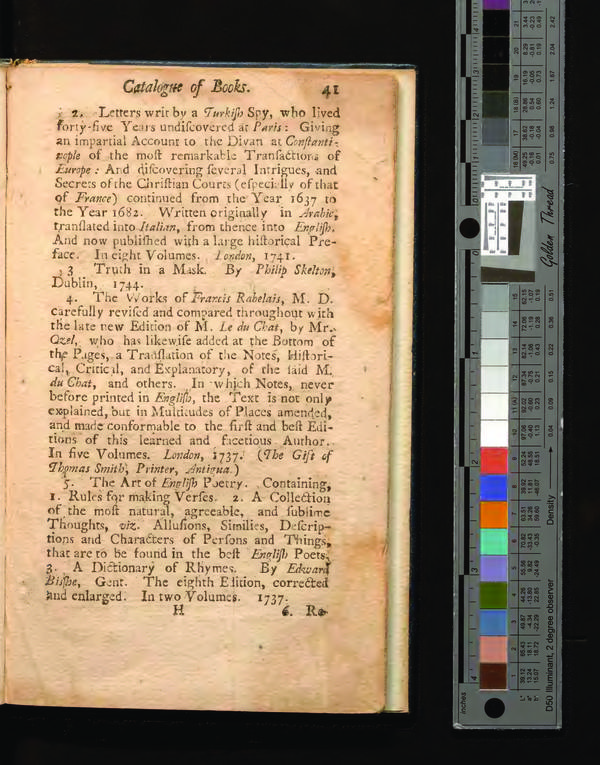 Catalogue of Books. 41
2. Letters writ by a Turkiſh Spy, who lived
forty-five Years undiſcovered at Paris: Giving
an impartial Account to the Divan at Conſtanti-
nople of the moſt remarkable Tranſactions of
Europe: And diſcovering ſeveral Intrigues, and
Secrets of the Chriſtian Courts (eſpecially of that
of France) continued from the Year 1637 to
the Year 1682. Written originally in Arabic,
tranſlated into Italian, from thence into Engliſh.
And now publiſhed with a large hiſtorical Pre-
face. In eight Volumes. London, 1741.
3 Truth in a Mask. By Philip Skelton,
Dublin, 1744.
4. The Works of Francis Rabelais, M. D.
carefully reviſed and compared throughout with
the late new Edition of M. Le du Chat, by Mr.
Ozel, who has likewiſe added at the Bottom of
the Pages, a Tranſlation of the Notes, Hiſtori-
cal, Critical, and Explanatory, of the ſaid M.
du Chat, and others. In which Notes, never
before printed in Engliſh, the Text is not only
explained, but in Multitudes of Places amended,
and made conformable to the firſt and beſt Edi-
tions of this learned and facetious Author.
In five Volumes. London, 1737. (The Gift of
Thomas Smith, Printer, Antigua.)
5. The Art of Engliſh Poetry. Containing,
1. Rules for making Verſes. 2. A Collection
of the moſt natural, agreeable, and ſublime
Thoughts, viz. Alluſions, Similies, Deſcrip-
tions and Characters of Perſons and Things,
that are to be found in the beſt Engliſh Poets.
3. A Dictionary of Rhymes. By Edward
Biſſhe, Gent. The eighth Edition, corrected
and enlarged. In two Volumes. 1737.
H 6. Re-
Golden Thread
Density
D50 Illuminant, 2 degree observer
inches